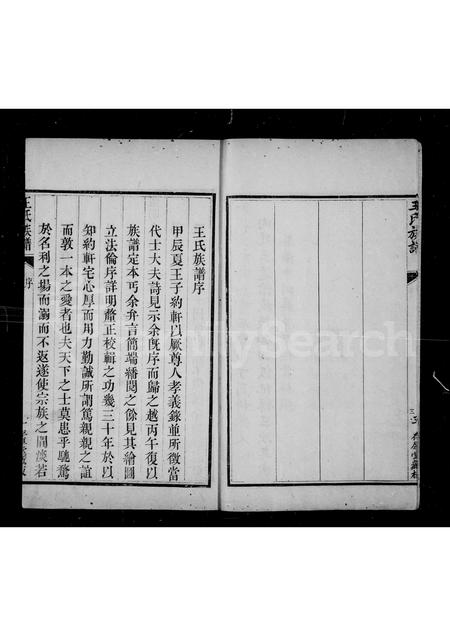 王氏族譜
王氏族譜序
甲辰夏王子約軒以厥尊人孝義錄並所徵當
代士大夫詩見示余旣序而歸之越丙午復以
族譜定本丐余弁言簡端繙閱之餘見其繪圖
立法倫序詳明釐正校輯之功幾三十年於以
知約軒宅心厚而用力勤誠所謂篤親親之誼
而敦一本之愛者也夫天下之士莫患乎馳騖
於名利之場而溺而不返遂使宗族之間淡若
王氏族譜
序
FamilySearch